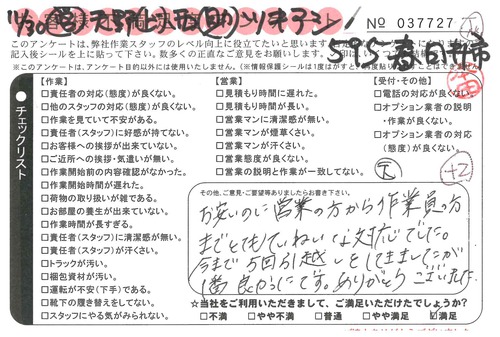 No 037727
このアンケートは、弊社作業スタッフのレベル向上に役立てたいと思います。
春日井市
【作業】
□責任者の対応(態度)が良くない。
□他のスタッフの対応(態度)が良くない。
□作業を見ていて不安がある。
□責任者(スタッフ)に好感が持てない。
□お客様への挨拶が出来ていない。
□ご近所への挨拶・気遣いが無い。
□作業開始前の内容確認がなかった。
□作業開始時間が遅れた。
□荷物の取り扱いが雑である。
□お部屋の養生が出来ていない。
□作業時間が長すぎる。
□責任者(スタッフ)に清潔感が無い。
□責任者(スタッフ)が汗くさい。
□トラックが汚い。
□梱包資材が汚い。
□運転が不安(下手)である。
□靴下の履き替えをしてない。
□スタッフにやる気がみられない。
【営業】
□見積もり時間に遅れた。
□見積もり時間が長い。
□営業マンに清潔感が無い。
□営業マンが煙草くさい。
□営業マンが汗くさい。
□営業態度が良くない。
□営業の説明と作業が一致してない。
【受付・その他】
□電話の対応が良くない。
□オプション業者の説明
・作業が良くない。
□オプション業者の対応
(態度)が良くない。
チェックリスト
その他、ご意見・ご要望等ありましたらお書き下さい。
お安いのに営業の方から作業員の方
までとてもていねいな対応でした。
今まで5回引越しをしてきましたが
1番良かったです。ありがとうございました。
☆当社をご利用いただきまして、ご満足いただけたでしょうか?
□不満 □やや不満 □普通 □やや満足 ☑満足